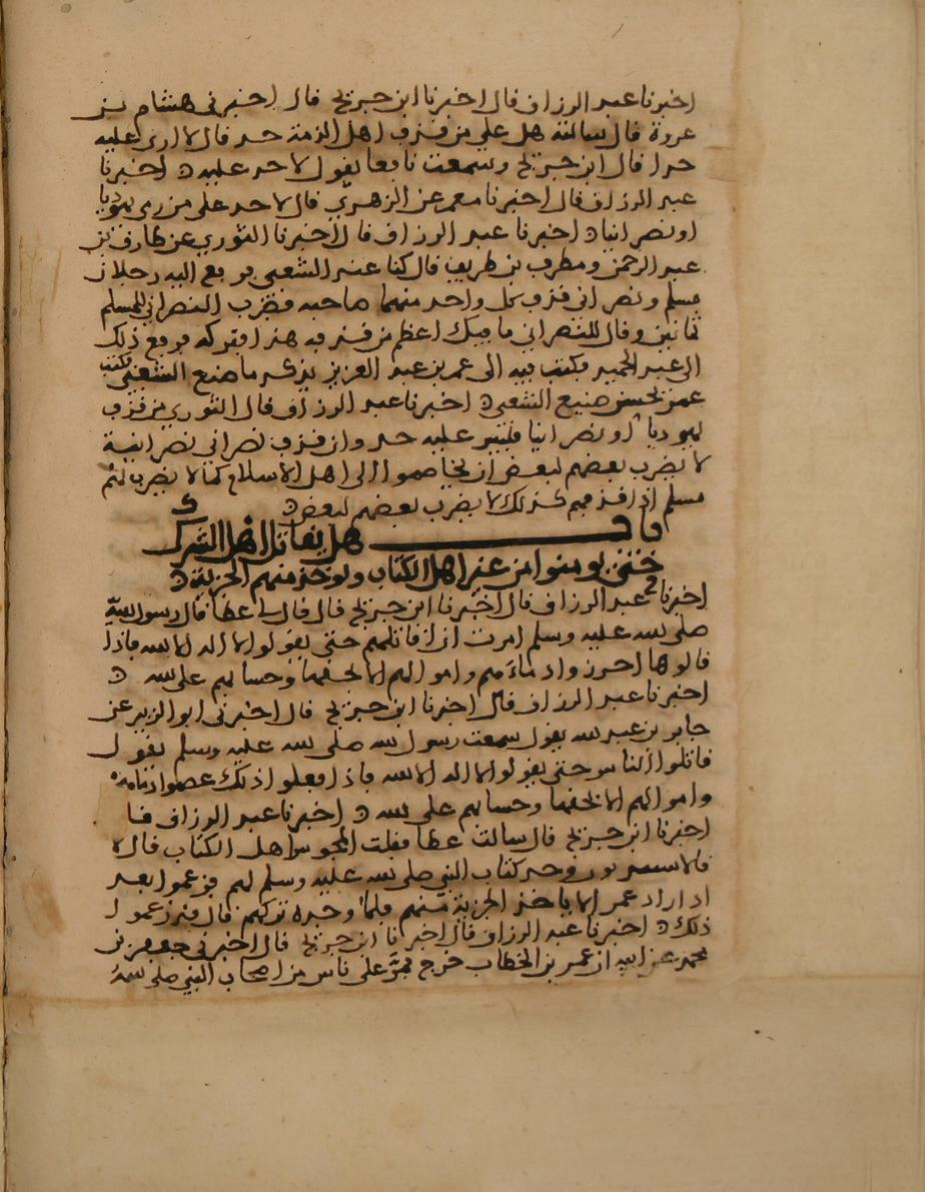 اخبرنا عبد الرزاق قال اخبرنا ابن جريج قال اخبرني هشام بن
عروة قال سالته هل على من قذف اهل الذمة حد قال لا ارى عليه
حدا قال ابن جريج وسمعت نافعا يقول لا حد عليه اخبرنا
عبد الرزاق قال اخبرنا معمر عن الزهري قال لا حد على من رمى يهوديا
او نصرانيا اخبرنا عبد الرزاق قال اخبرنا الثوري عن طارق بن
عبد الرحمن ومطرف بن طريف قال كنا عند الشعبي فرفع اليه رجلان
مسلم ونصراني قذف كل واحد منهما صاحبه فضرب النصراني للمسلم
ثمانين وقال للنصراني ما فيك اعظم من قذفه هذا فتركه فرفع ذلك
الى عبد الحميد فكتب فيه الى عمر بن عبد العزيز يذكر ما صنع الشعبي فكتب
عمر يحسن صنيع الشعبي اخبرنا عبد الرزاق قال الثوري من قذف
يهوديا او نصرانيا فليس عليه حد وان قذف نصراني نصرانية
لا يضرب بعضهم لبعض ان تخاصموا الى اهل الاسلام كما لا يضرب لهم
مسلم اذا قذفهم كذلك لا يضرب بعضهم لبعض
باب هل يقاتل اهل الشرك
حتى يومنوا من غير اهل الكتاب وتوخذ منهم الجزية
اخبرنا عبد الرزاق قال اخبرنا ابن جريج قال قال عطا قال رسول الله
صلى الله عليه وسلم امرت ان اقاتلهم حتى يقولوا لا اله الا الله فاذا
قالوها احرزوا دماءهم واموالهم الا بحقها وحسابهم على الله
اخبرنا عبد الرزاق قال اخبرنا ابن جريج قال اخبرني ابو الزبير عن
جابر بن عبد الله يقول سمعت رسول الله صلى الله عليه وسلم يقول
قاتلوا الناس حتى يقولوا لا اله الا الله فاذا فعلوا ذلك عصموا دماهم
واموالهم الا بحقها وحسابهم على الله اخبرنا عبد الرزاق قا
اخبرنا ابن جريج قال سالت عطا فقلت المجوس اهل الكتاب قال لا
قال وجد كتاب النبي صلى الله عليه وسلم لهم فزعموا بعد
اذ اراد عمر ان ياخذ الجزية منهم فلما وجده تركهم قال قد زعموا
ذلك اخبرنا عبد الرزاق قال اخبرنا ابن جريج قال اخبرني جعفر بن
محمد عن ابيه ان عمر بن الخطاب خرج فمر على ناس من اصحاب النبي صلى الله